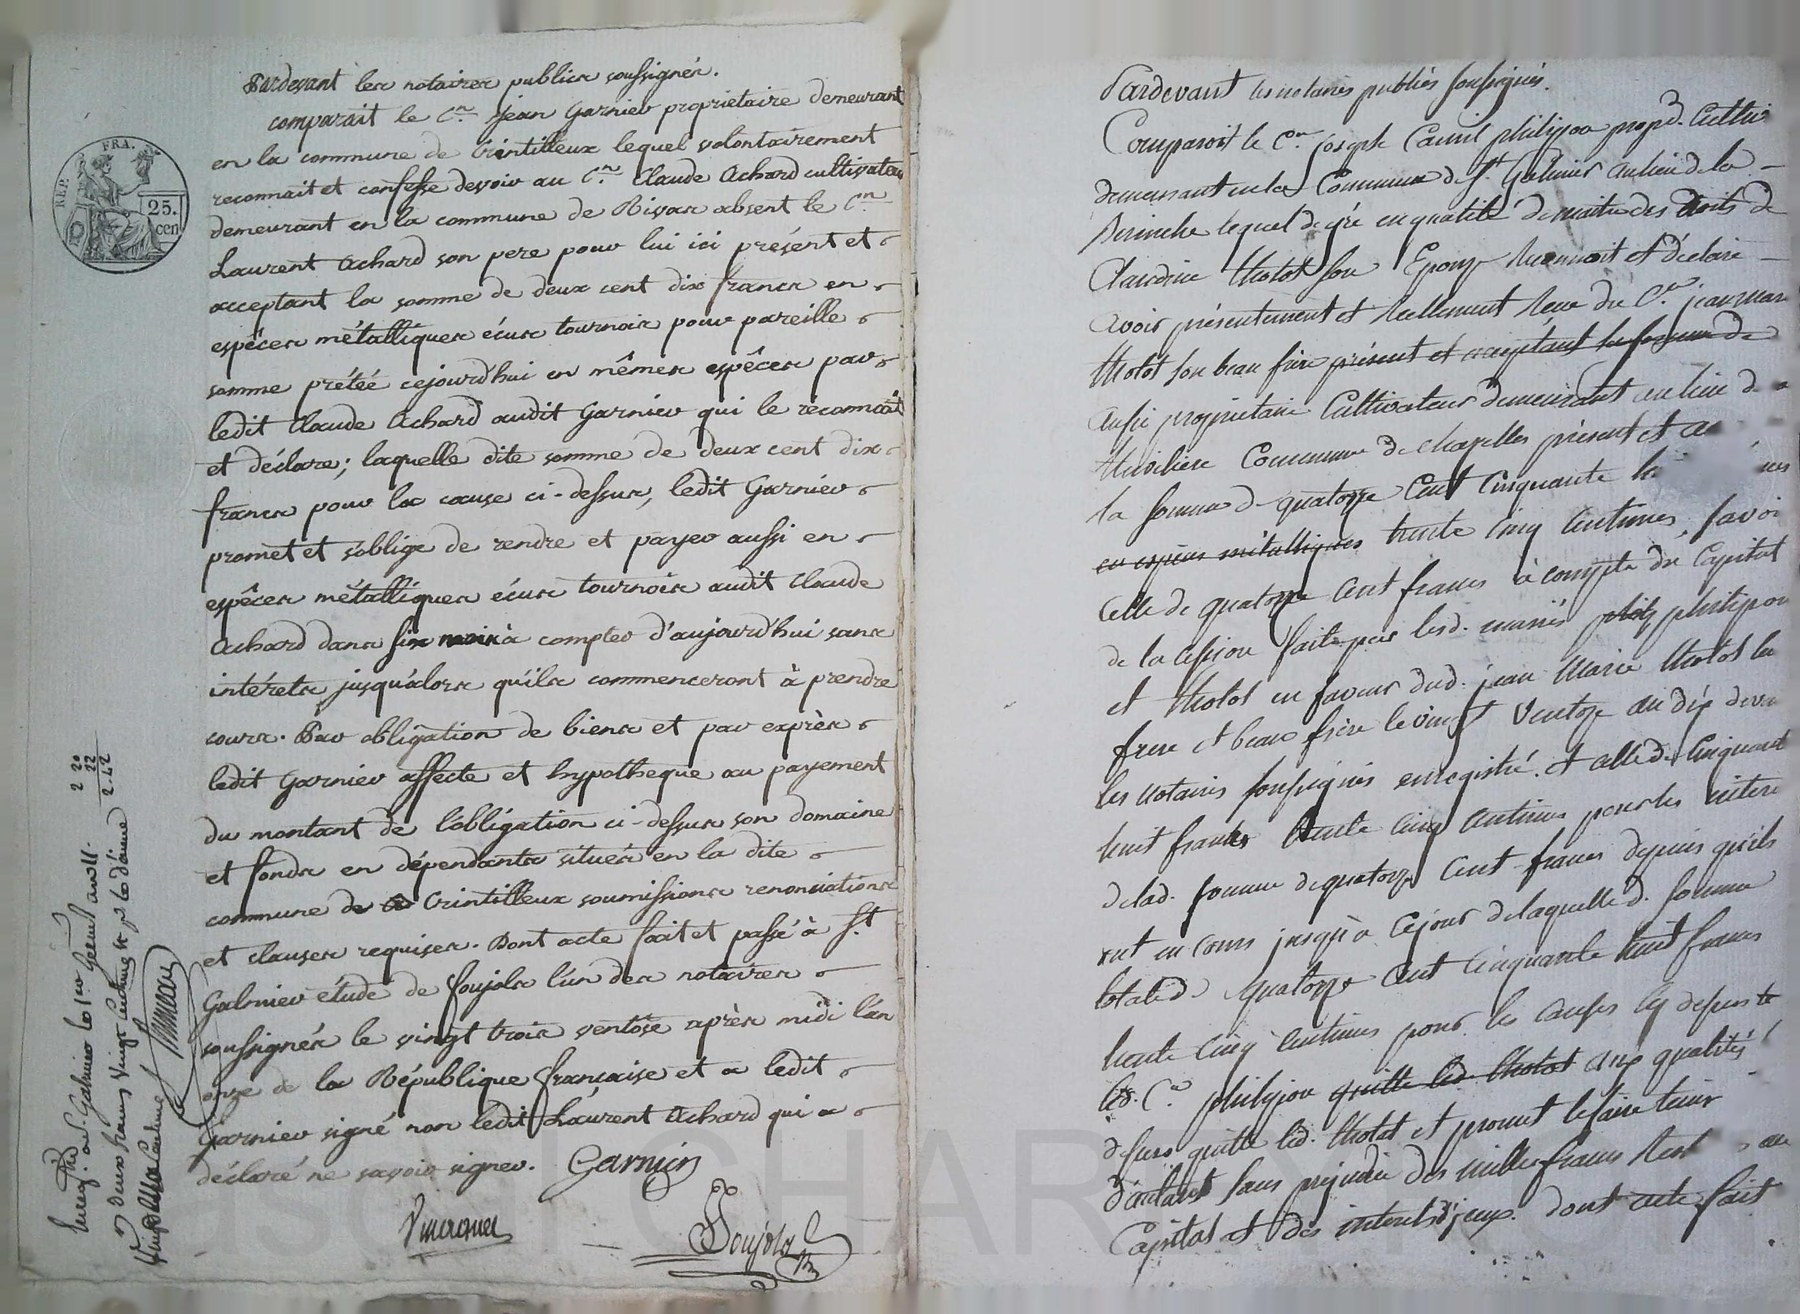 Pardevant les notaires publics soussignés.
comparait le C.en Jean Garnier proprietaire demeurant
en la commune de Grintilleux lequel volontairement
reconnait et confesse devoir au C.en Claude Achard cultivateur
demeurant en la commune de Rivas absent le C.en
Laurent Achard son pere pour lui ici présent et
acceptant la somme de deux cent dix francs en
espêces métalliques écus tournois pour pareille
somme prétéé cejourd'hui en mêmes espêces par
ledit Claude Achard audit Garnier qui le reconnait
et déclare; laquelle dite somme de deux cent dix
francs pour la cause ci-dessus, ledit Garnier
promet et s'oblige de rendre et payer aussi en
espêces métalliques écus tournois audit Claude
Achard dans six mois à compter d'aujourd'hui sans
intérets jusqu'alors qu'ils commenceront à prendre
cours. Par obligation de biens et par exprès
ledit Garnier affecte et hypotheque au payement
du montant de l'obligation ci-dessus son domaine
et fonds en dépendants situés en la dite
commune de Grintilleux soumissions renonciations
et clauses requises. Dont acte fait et passé à S.t
Galmier étude de Soujols l'un des notaires
soussignés le vingt trois ventôse après midi l'an
onze de la République française et a ledit
Garnier signé non ledit Laurent Achard qui a
déclaré ne savoir signer. Garnier
Soujols
REP. FRA.
25.
cen
2 20
22
2.42
Galmier le 1er Germ.l an 11.
deux francs vingt centimes
Pardevant les notaires publics soussignés.
Comparoit le C.en joseph Camil philipon prop.d Cultiv
demeurant en la Commune de S.t Galmier au lieu de la
lequel de gré en qualité de maitre des droits de
Claudine tholot son Epouze reconnoit et déclare
avoir présentement et réellement reçu du C.en jean marie
tholot son beau frère présent et acceptant la somme de
aussi proprietaire Cultivateur demeurant au lieu de
Commune de chazelles présent et
la somme de quatorze Cent Cinquante
en espèces métalliques trente cinq Centimes, savoir
Celle de quatorze Cent francs à compte du Capital
de la cession faite par lesd. mariés philipon
et tholot en faveur dud. jean Marie tholot leur
frere et beau frère le vingt Ventoze an dix devant
les Notaires soussignés enregistré. et celle de Cinquante
huit francs trente cinq Centimes pour les intérets
de lad. somme de quatorze Cent francs depuis qu'ils
ont eu cours jusqu'à Cejour de laquelle d. somme
totale de quatorze Cent Cinquante huit francs
trente Cinq Centimes pour les Causes cy dessus
led. C.en philipon quitte led. tholot aux qualités
dessus quitte led. tholot et promet le faire tenir
sans prejudice des mille francs
Capital et des interets d'jceux. dont acte fait